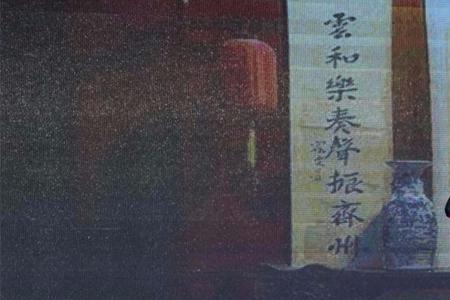 雲和樂奏聲振齊州